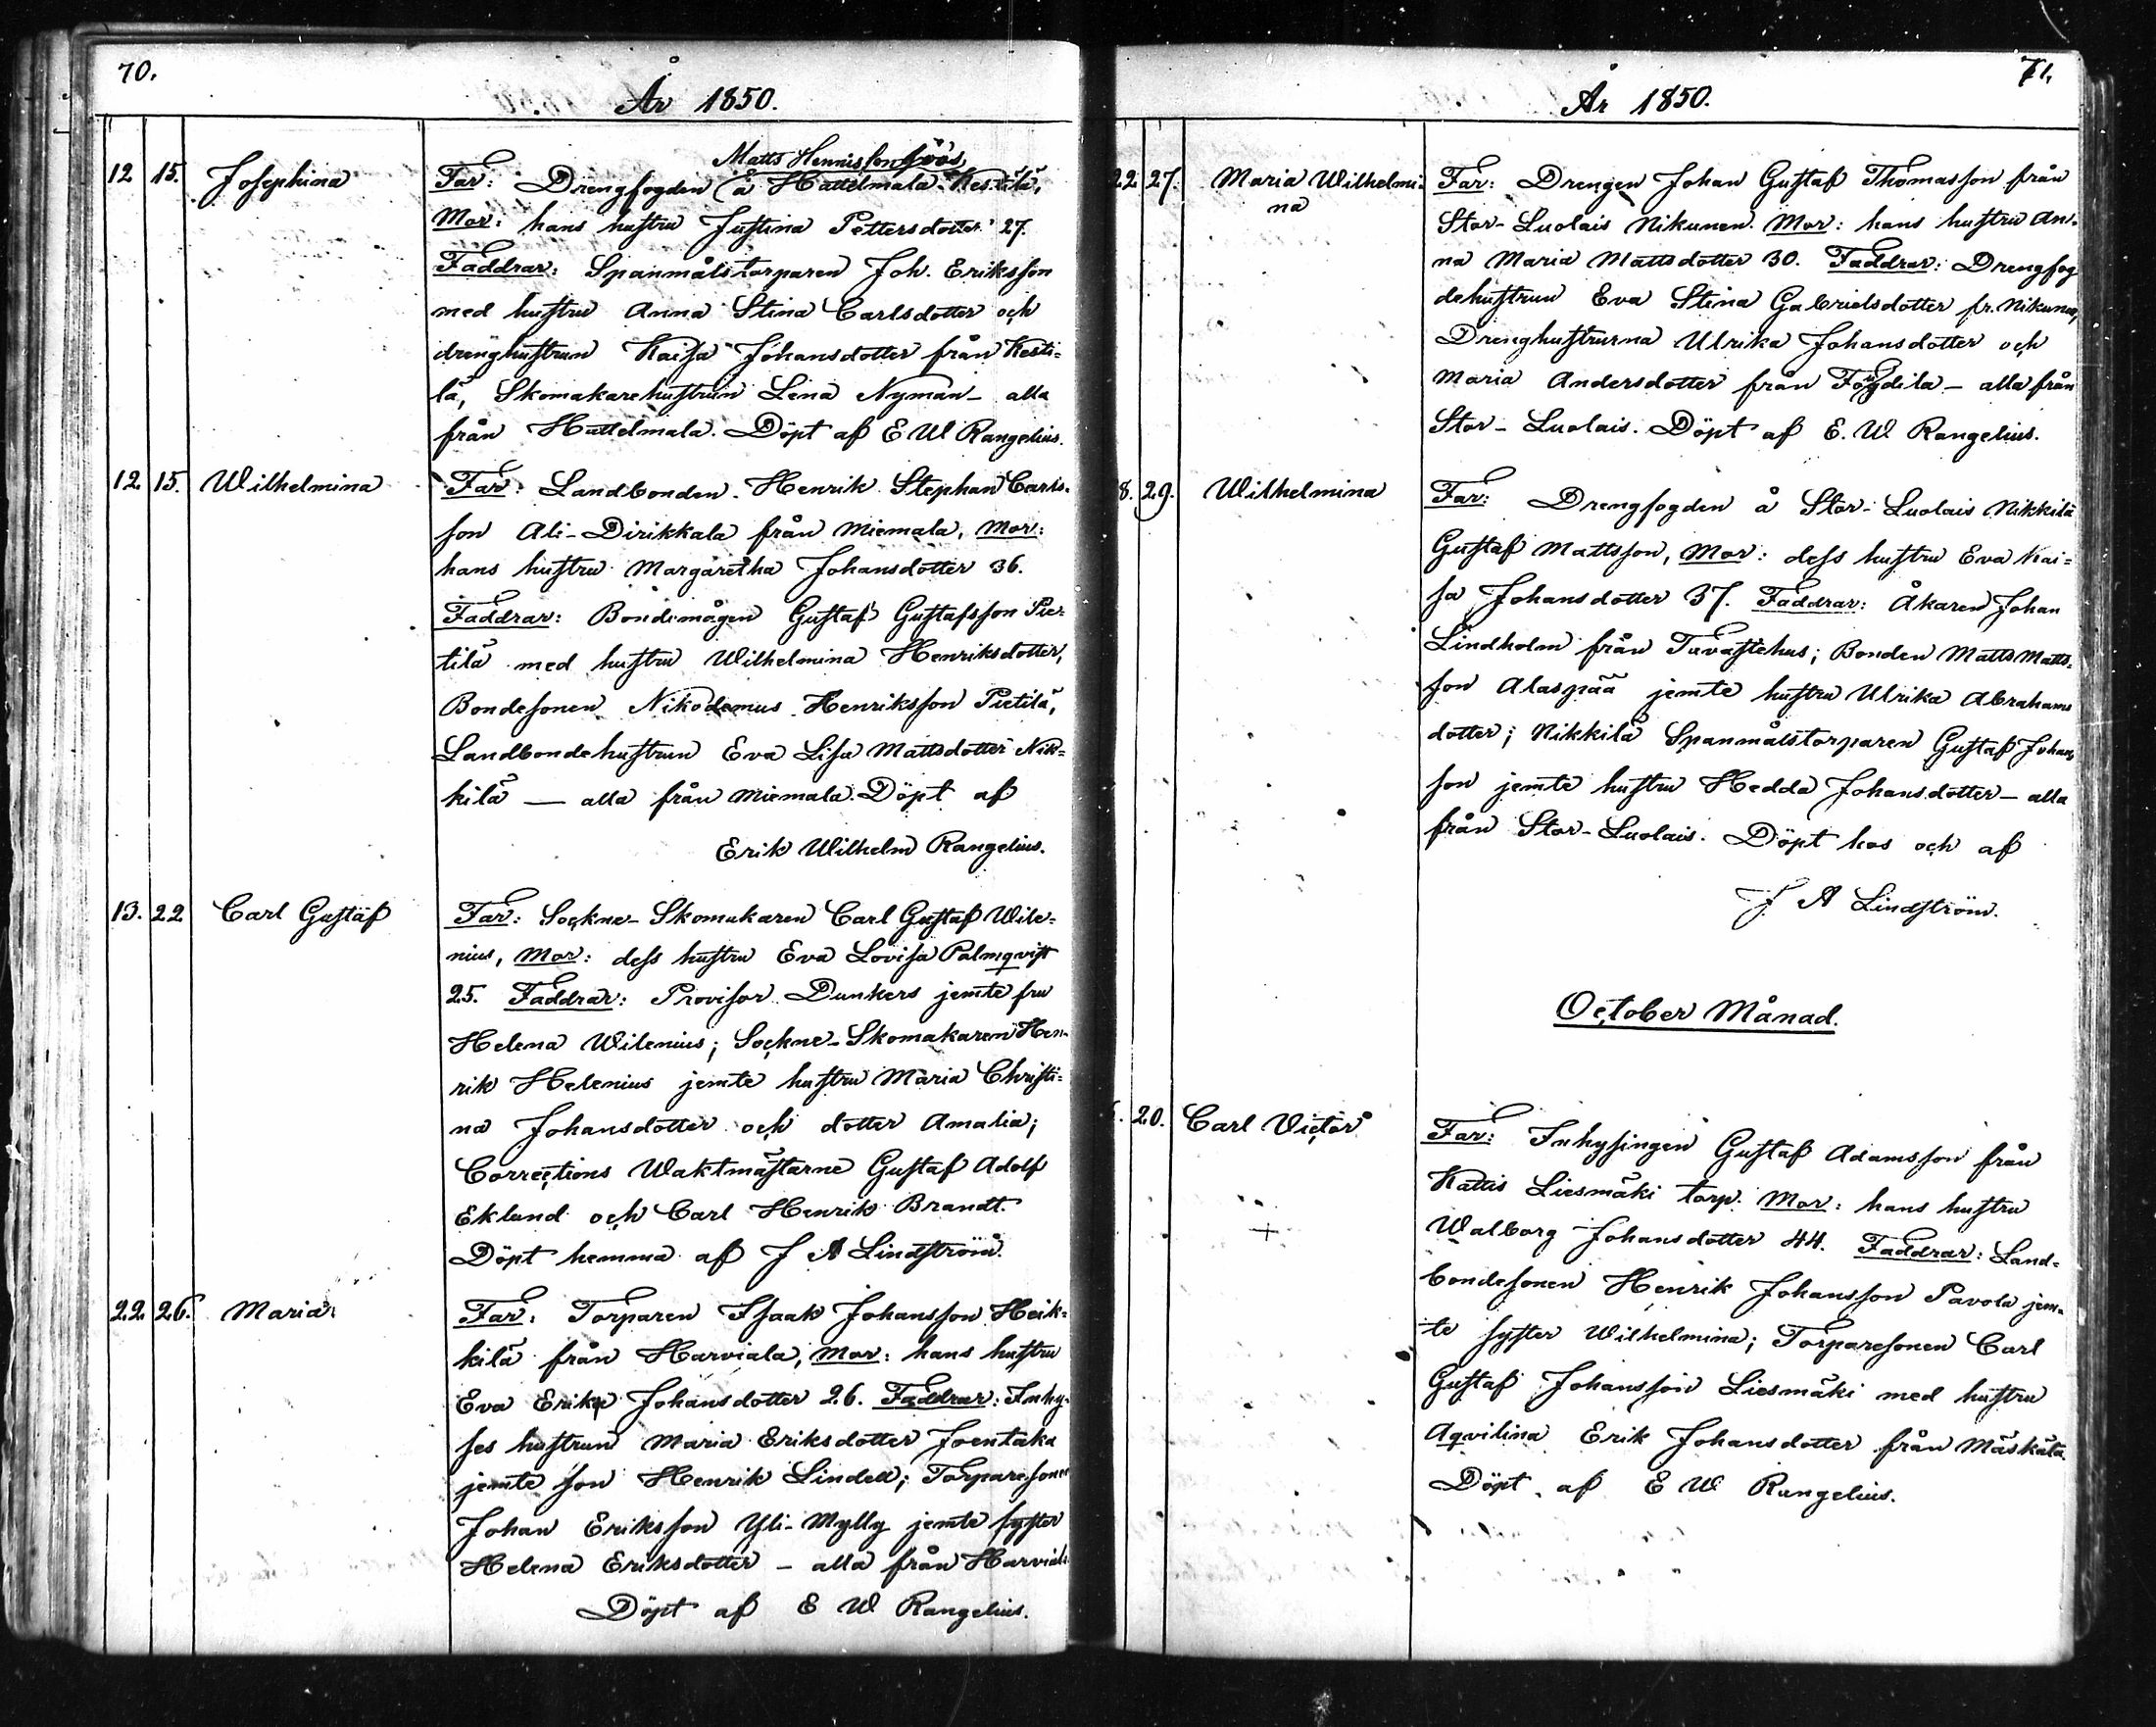 70.
År 1850.
Matts Hennisson Söös,
12 15. Josephina Far: Drengfogden å Hattelmala Kestilä,
Mor: hans hustru Justina Pettersdotter 27.
Faddrar: Spanmålstorparen Joh. Eriksson
med hustru Anna Stina Carlsdotter och
drenghustrun Kaisa Johansdotter från Kesti=
lä, Skomakarehustrun Lena Nyman - alla
från Hattelmala. Döpt af E W Rangelius.
12. 15. Wilhelmina Far: Landbonden Henrik Stephan Carls-
son Ali-Dirikkala från Miemala, Mor:
hans hustru Margaretha Johansdotter 36.
Faddrar: Bondemågen Gustaf Gustafsson Pie-
tilä med hustru Wilhelmina Henriksdotter,
Bondesonen Nikodemus Henriksson Pietilä,
Landbondehustrun Eva Lisa Mattsdotter Nik=
kilä — alla från Miemala. Döpt af
Erik Wilhelm Rangelius.
13. 22 Carl Gustaf Far: Sockne-Skomakaren Carl Gustaf Wile=
nius, Mor: dess hustru Eva Lovisa Palmqvist
25. Faddrar: Provisor Dunkers jemte fru
Helena Wilenius; Sockne-Skomakaren Hen-
rik Helenius jemte hustru Maria Christi=
na Johansdotter och dotter Amalia;
Corrections Waktmästarne Gustaf Adolf
Eklund och Carl Henrik Brandt.
Döpt hemma af J A Lindström.
22. 26. Maria Far: Torparen Isaak Johansson Heik-
kilä från Harviala, Mor: hans hustru
Eva Erika Johansdotter 26. Faddrar: Inhy-
ses hustrun Maria Eriksdotter Joentaka
jemte son Henrik Lindell; Torparesonen
Johan Eriksson Yli-Mylly jemte syster
Helena Eriksdotter - alla från Harviala
Döpt af E W Rangelius.
71.
År 1850.
22 27. Maria Wilhelmi- Far: Drengen Johan Gustaf Thomasson från
na Stor-Luolais Nikunen. Mor: hans hustru An-
na Maria Mattsdotter 30. Faddrar: Drengfog
dehustrun Eva Stina Gabrielsdotter fr. Nikunen,
Drenghustrurna Ulrika Johansdotter och
Maria Andersdotter från Fogdila - alla från
Stor-Luolais. Döpt af E. W Rangelius.
8. 29. Wilhelmina Far: Drengfogden å Stor-Luolais Nikkilä
Gustaf Mattsson, Mor: dess hustru Eva Kai=
sa Johansdotter 37. Faddrar: Åkaren Johan
Lindholm från Tavastehus; Bonden Matts Matts-
son Alaspää jemte hustru Ulrika Abrahams
dotter; Nikkilä Spanmålstorparen Gustaf Johans
son jemte hustru Hedda Johansdotter - alla
från Stor-Luolais. Döpt hos och af
J A Lindström.
October Månad.
20. Carl Victor Far: Inhysingen Gustaf Adamsson från
Kattis Liesmäki torp. Mor: hans hustru
+ Walborg Johansdotter 44. Faddrar: Land-
bondesonen Henrik Johansson Pavola jem-
te syster Wilhelmina; Torparesonen Carl
Gustaf Johansson Liesmäki med hustru
Aqvilina Erik Johansdotter från Mäskälä.
Döpt af E W Rangelius.